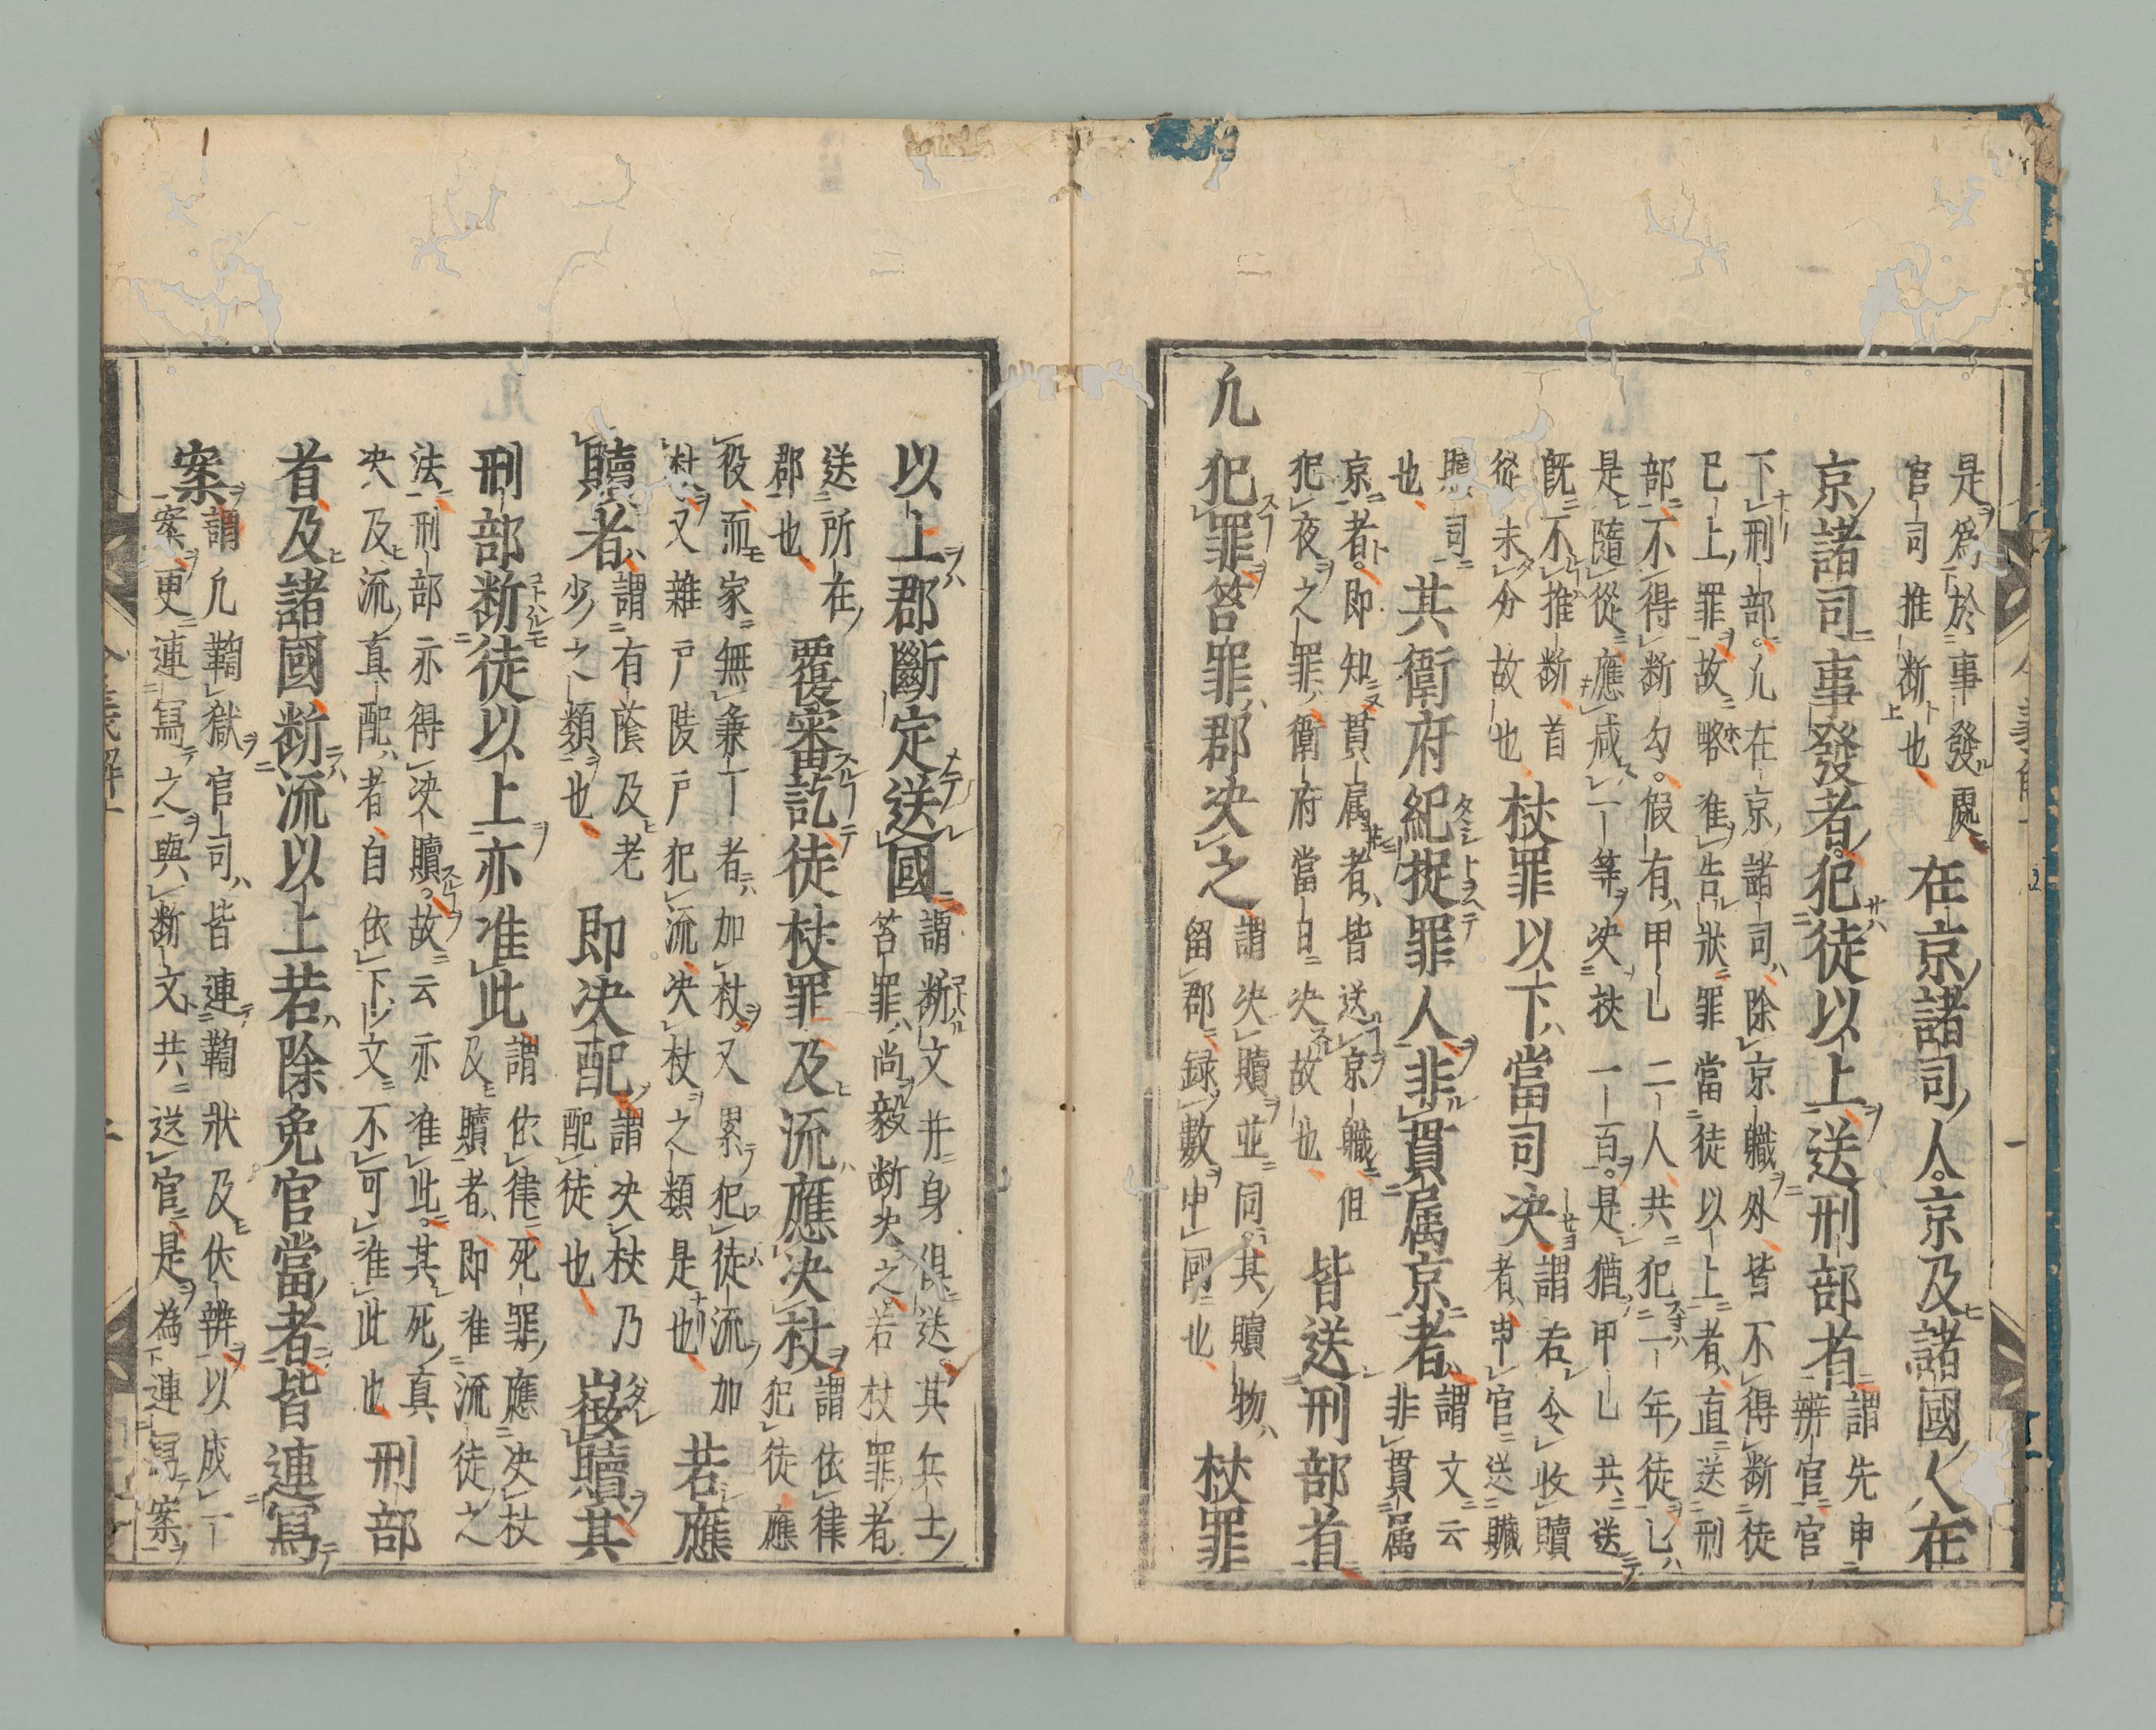 是爲於事發處
官司推断也
在京諸司人京及諸國人在
京諸司事發者犯徒以上送刑部省
謂先申
辨官官
下刑部凢在京諸司除京職外皆不得断徒
已上罪故略准告状罪當徒以上者直送刑
部不得断勾假有甲乚二人共犯一年徒乚
是隨從應減一等决杖一百是猶甲乚共送
既不推断首
從未分故也
杖罪以下當司决
謂若令收贖
者申官送贓
贖司
也
其衛府紀捉罪人非貫属京者
謂文云
非貫属
京者即知貫属者皆送京職但
犯夜之罪衛府當日决故也
皆送刑部省
凢犯罪笞罪郡决之
謂决贖並同其贖物
留郡録數申國也
杖罪
以上郡斷定送國
謂断文并身俱送其兵士
笞罪尚毅断决之若杖罪者
送所在
郡也
覆審訖徒杖罪及流應决杖
謂依律
犯徒應
役而家無兼丁者加杖又累犯徒流加
杖又雜戸陵戸犯流决杖之類是也
若應
贖者
謂有蔭及老
少之類也
即决配
謂决杖乃
配徒也
徴贖其
刑部断徒以上亦准此
謂依律死罪應决杖
及贖者即准流徒之
法刑部亦得决贖故云亦准此其死真
决及流真配者自依下文不可准此也
刑部
省及諸國断流以上若除免官當者皆連冩
案
謂凢鞫獄官司皆連鞫状及伏辨以成一
案更連冩之與断文共送官是為連冩案